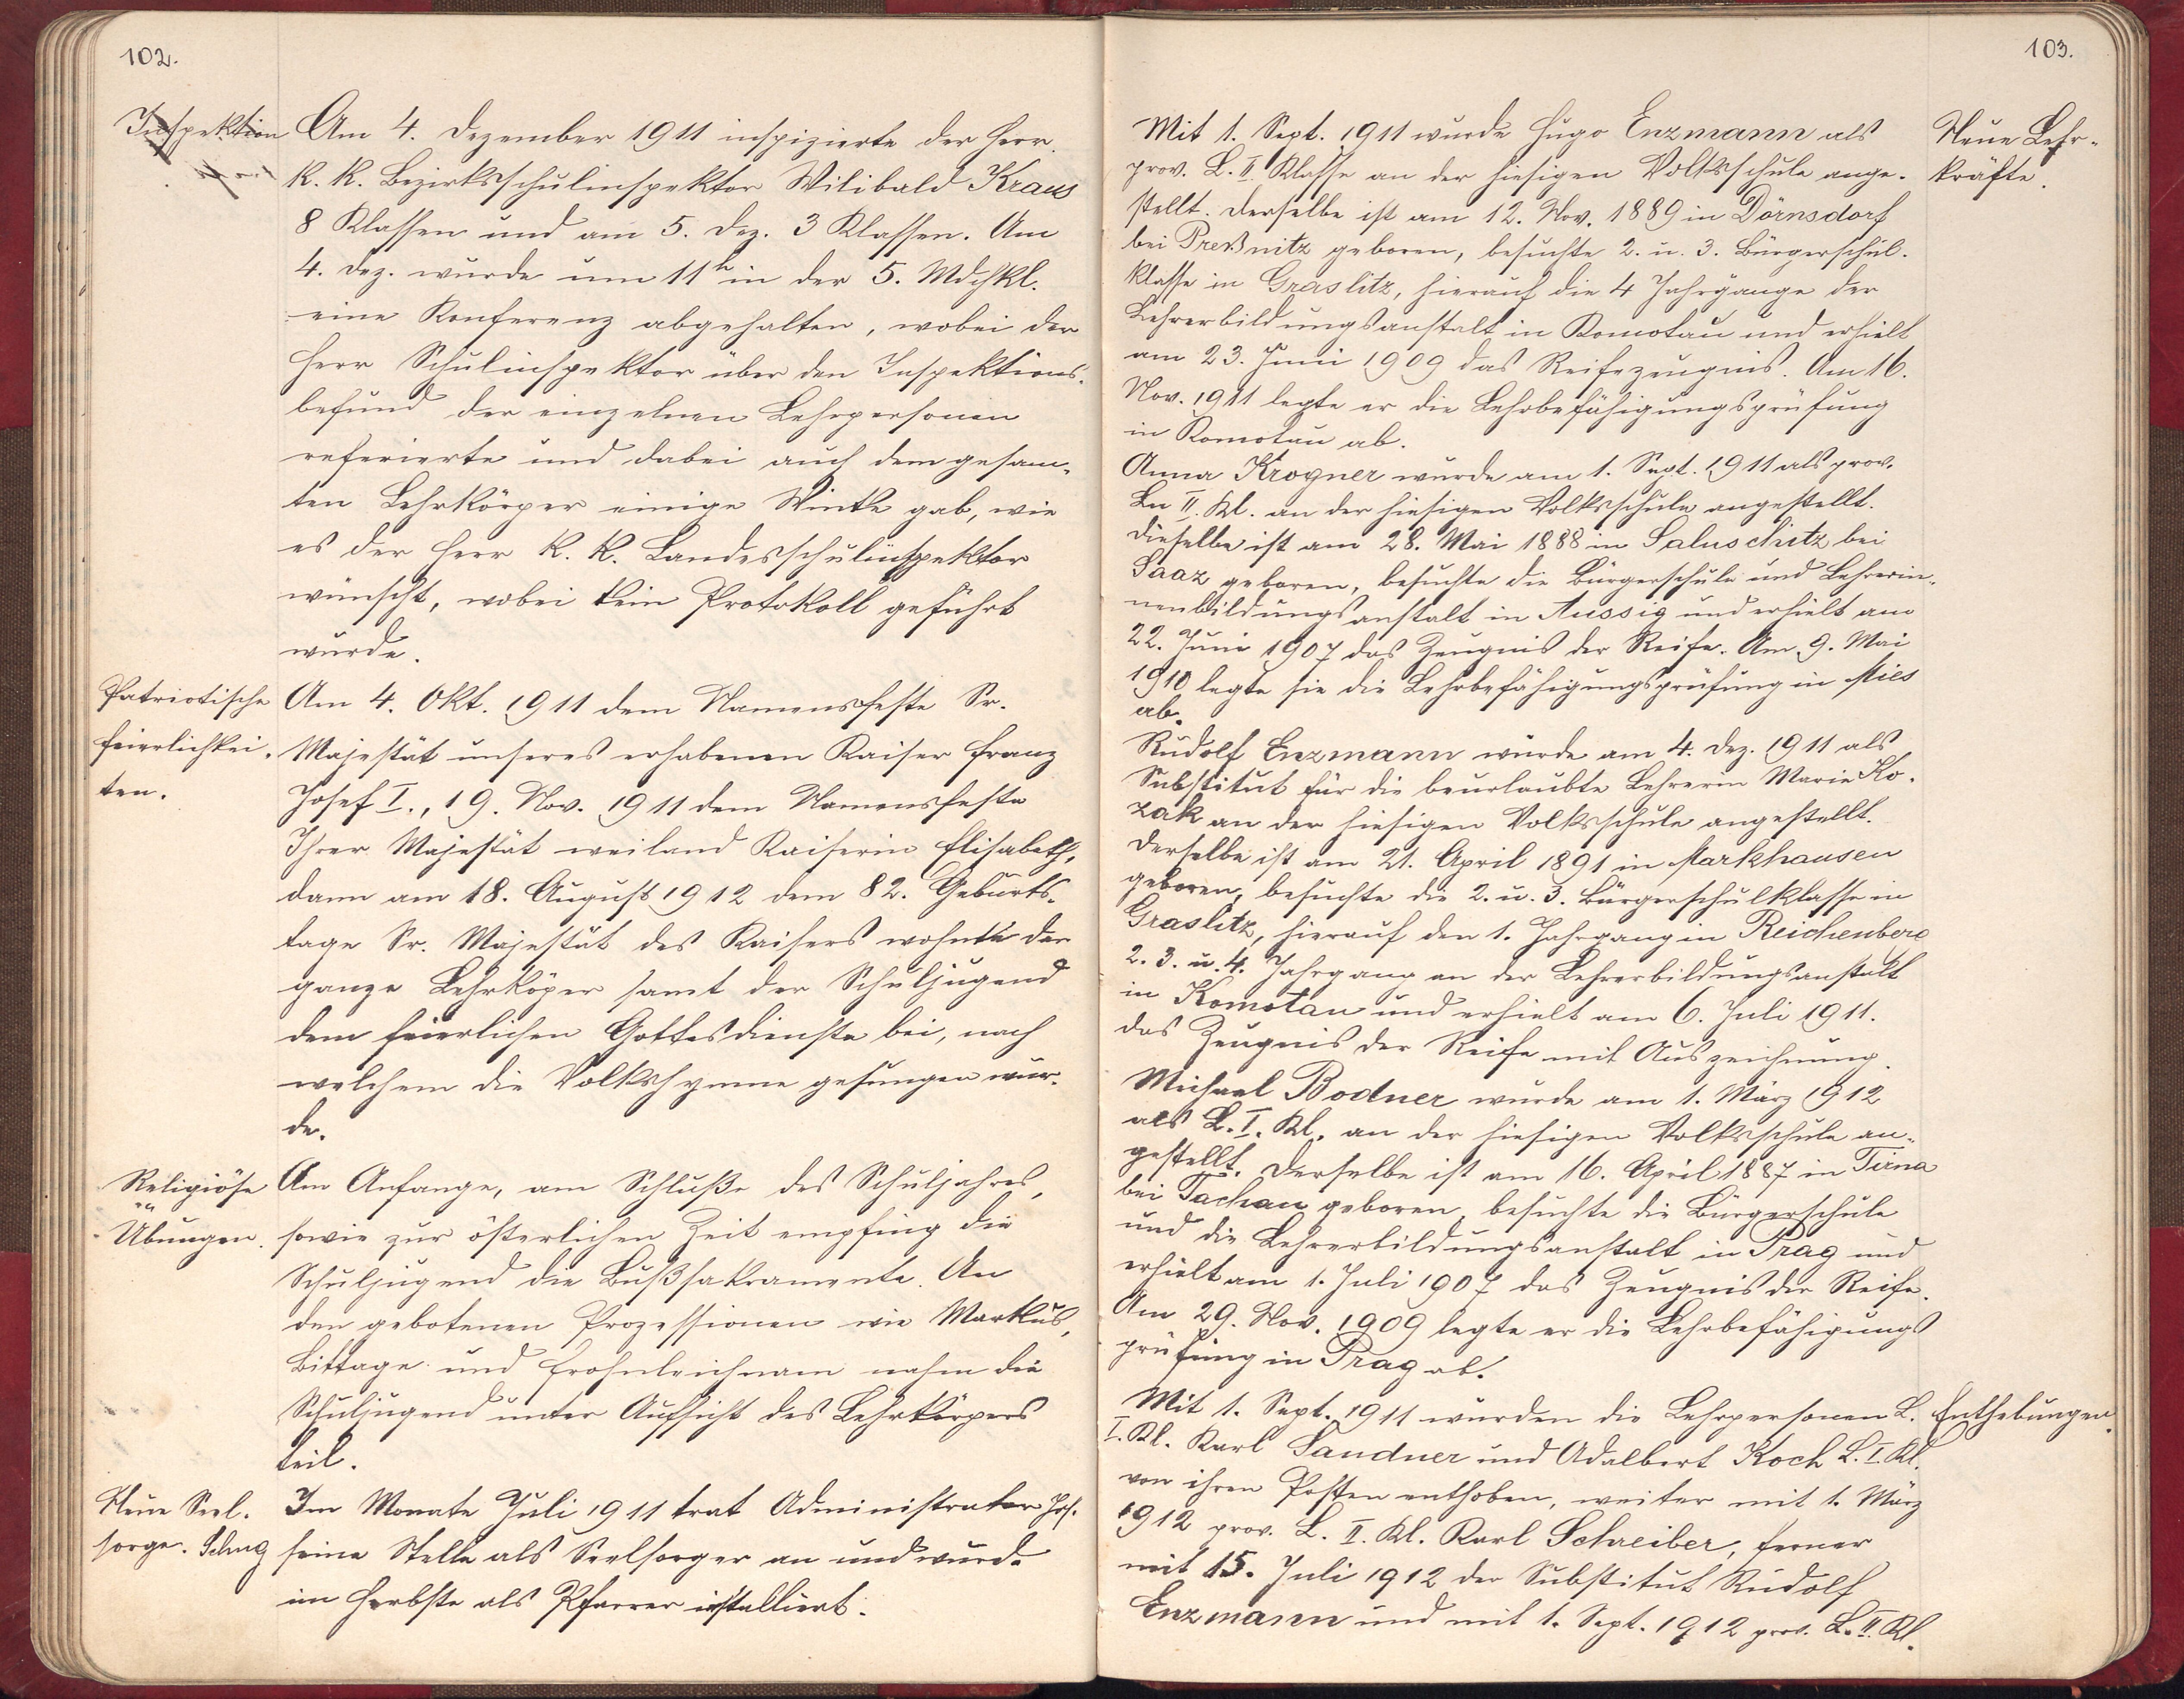 102.
Inspektion
Am 4. Dezember 1911 inspizierte der Herr
k. k. Bezirksschulinspektor Wilibald Kraus
8 Klassen und am 5. Dez. 3 Klassen. Am
4. Dez. wurde um 11h in der 5. Mdchkl.
eine Konferenz abgehalten, wobei der
Herr Schulinspektor über den Inspektions-
befund der einzelnen Lehrpersonen
referierte und dabei auch dem gesam-
ten Lehrkörper einige Winke gab, wie
es der Herr k. k. Landesschulinspektor
wünscht, wobei kein Protokoll geführt
wurde.
Patriotische
Feierlichkei-
ten.
Am 4. Okt. 1911 dem Namensfeste Sr.
Majestät unseres erhabenen Kaiser Franz
Josef I., 19. Nov. 1911 dem Namensfeste
Ihrer Majestät weiland Kaiserin Elisabeth,
dann am 18. August 1912 dem 82. Geburts-
tage Sr. Majestät des Kaisers wohnte der
ganze Lehrköper samt der Schuljugend
dem feierlichen Gottesdienste bei, nach
welchem die Volkshymne gesungen wur-
de.
Religiöse
Übungen.
Am Anfange, am Schluße des Schuljahres,
sowie zur österlichen Zeit empfing die
Schuljugend die Bußsakramente. An
den gebotenen Prozessionen wie Markus,
Bittage und Frohnleichnam nahm die
Schuljugend unter Aufsicht des Lehrkörpers
teil.
Neue Seel-
sorge.
Im Monate Juli 1911 trat Administrator Jos.
Schug seine Stelle als Seelsorger an und wurde
im Herbste als Pfarrer installiert.
103.
Neue Lehr-
kräfte.
Mit 1. Sept. 1911 wurde Hugo Enzmann als
prov. L. II. Klasse an der hiesigen Volksschule ange-
stellt. Derselbe ist am 12. Nov. 1889 in Dörnsdorf
bei Preßnitz geboren, besuchte 2. u. 3. Bürgerschul-
klasse in Graslitz, hierauf die 4 Jahrgänge der
Lehrerbildungsanstalt in Komotau und erhielt
am 23. Juni 1909 das Reifezeugnis. Am 16.
Nov. 1911 legte er die Lehrbefähigungsprüfung
in Komotau ab.
Anna Krogner wurde am 1. Sept. 1911 als prov.
Ln II. Kl. an der hiesigen Volksschule angestellt.
Dieselbe ist am 28. Mai 1888 in Saluschitz bei
Saaz geboren, besuchte die Bürgerschule und Lehrerin-
nenbildungsanstalt in Aussig und erhielt am
22. Juni 1907 das Zeugnis der Reife. Am 9. Mai
1910 legte sie die Lehrbefähigungsprüfung in Mies
ab.
Rudolf Enzmann wurde am 4. Dez. 1911 als
Substitut für die beurlaubte Lehrerin Marie Ko-
zak an der hiesigen Volksschule angestellt.
Derselbe ist am 21. April 1891 in Markhausen
geboren, besuchte die 2. u. 3. Bürgerschulklasse in
Graslitz, hierauf den 1. Jahrgang in Reichenberg
2. 3. u. 4. Jahrgang an der Lehrerbildungsanstalt
in Komotau und erhielt am 6. Juli 1911.
das Zeugnis der Reife mit Auszeichnung.
Michael Bodner wurde am 1. März 1912
als L. I. Kl. an der hiesigen Volksschule an-
gestellt. Derselbe ist am 16. April 1887 in Tirna
bei Tachau geboren, besuchte die Bürgerschule
und die Lehrerbildungsanstalt in Prag und
erhielt am 1. Juli 1907 das Zeugnis der Reife.
Am 29. Nov. 1909 legte er die Lehrbefähigungs
prüfung in Prag ab.
Enthebungen.
Mit 1. Sept. 1911 wurden die Lehrpersonen L.
I. Kl. Karl Sandner und Adalbert Koch L. I. Kl.
von ihren Posten enthoben, weiter mit 1. März
1912 prov. L. II. Kl. Karl Schreiber, ferner
mit 15. Juli 1912 der Substitut Rudolf
Enzmann und mit 1. Sept. 1912 prov. L. II. Kl.